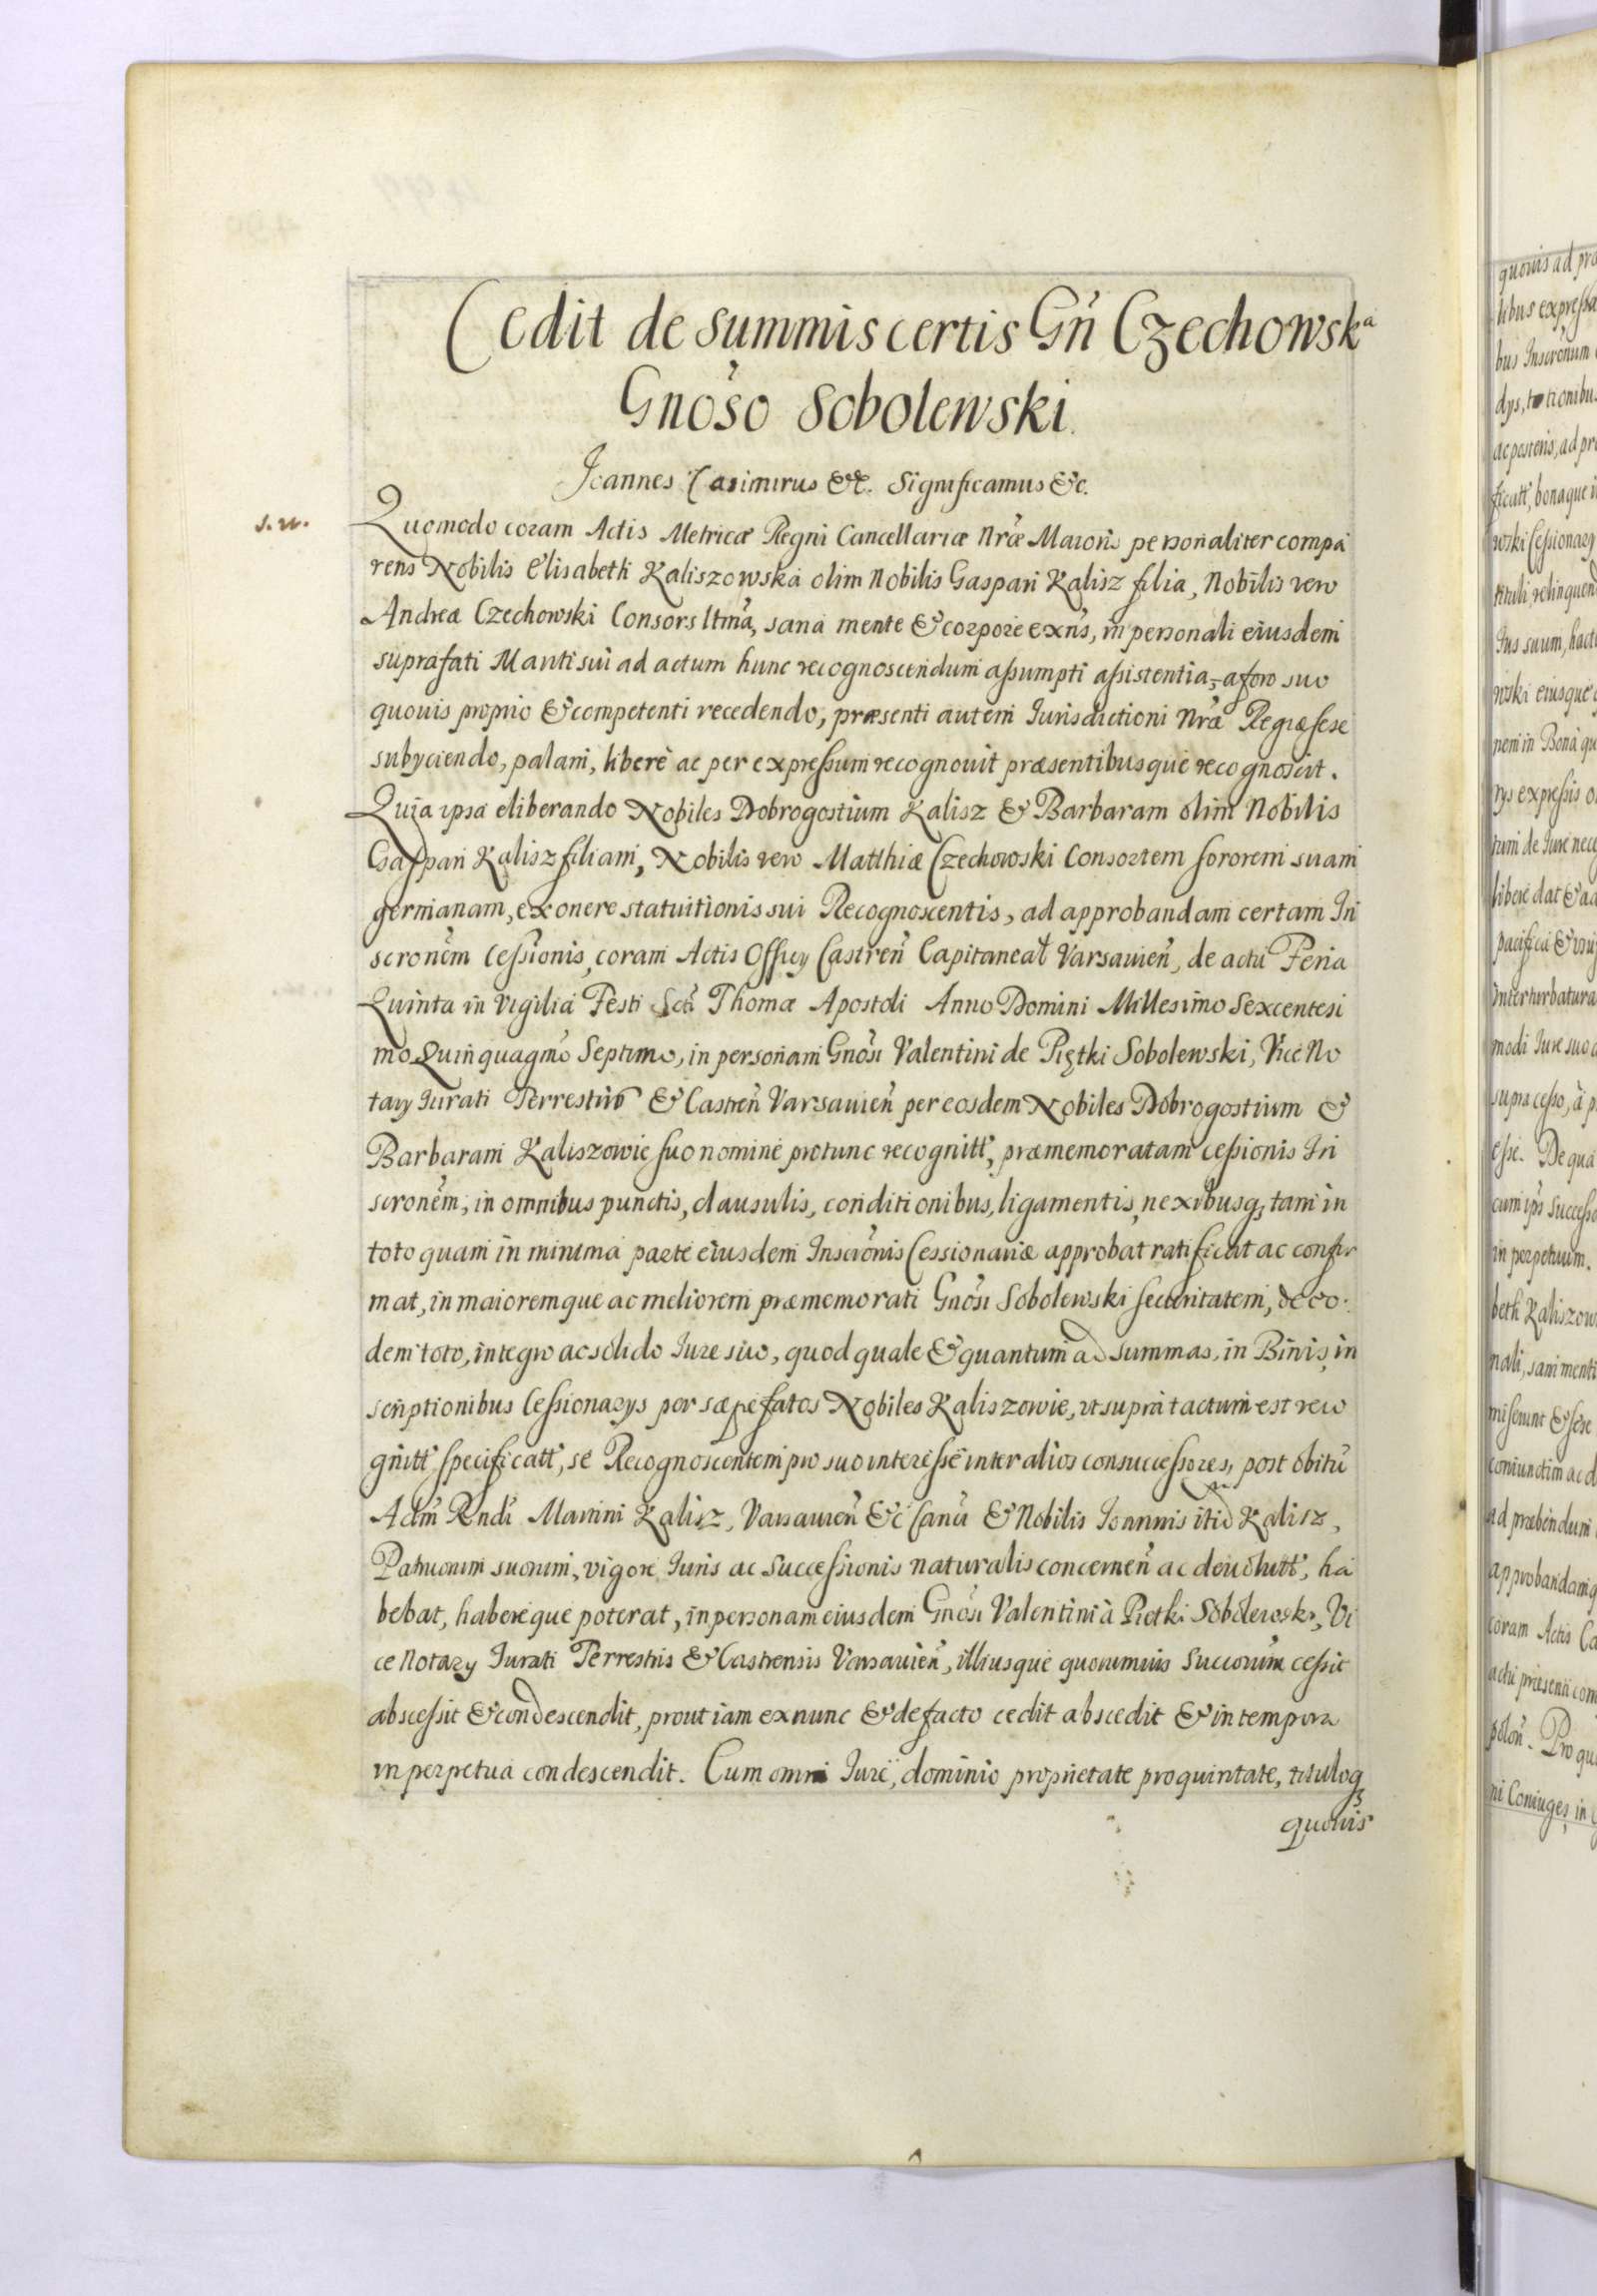 Cedit de summis certis Gn̄ Czechowska
Gnoso Sobolewski.
Joannes Casimirus &c. Significamus &c.
s. w.
Quomodo coram Actis Metricæ Regni Cancellariæ Nræ Maioris personaliter compa
rens Nobilis Elisabeth Kaliszowska olim Nobilis Gaspari Kalisz filia, Nobilis vero
Andreæ Czechowski Consors ltma, sana mente & corpore exñs, in personali eiusdem
suprafati Mariti sui ad actum hunc recognoscendum assumpti assistentia, a foro suo
quouis proprio & competenti recedendo, præsenti autem Iurisdictioni Nræ Regiæ sese
subyciendo, palam, liberè ac per expressum recognouit præsentibusque recognoscit.
Quia ipsa eliberando Nobiles Dobrogostium Kalisz & Barbaram olim Nobilis
Gaspari Kalisz filiam, Nobilis vero Matthiæ Czechowski Consortem sororem suam
germanam, ex onere statuitionis sui Recognoscentis, ad approbandam certam In
scronem Cessionis, coram Actis Officy Castren̄ Capitaneat Varsauien̄, de actu Feria
Quinta in Vigilia Festi Scti Thomæ Apostoli Anno Domini Millesimo Sexcentesi
mo Quinquagmo Septimo, in personam Gnosi Valentini de Piętki Sobolewski, Vice No
tary Iurati Terrestris & Castren̄ Varsauien̄ per eosdem Nobiles Dobrogostium &
Barbaram Kaliszowie suo nomine protunc recognitt, præmemoratam cessionis In
scronem, in omnibus punctis, clausulis, conditionibus, ligamentis, nexibusq; tam in
toto quam in minima parte eiusdem Inscronis Cessionariæ approbat ratificat ac confir
mat, in maioremque ac meliorem præmemorati Gnosi Sobolewski securitatem, de eo.
dem toto, integro ac solido Iure suo, quod quale & quantum ad summas, in Binis, in
scriptionibus Cessionarys per sæpefatos Nobiles Kaliszowie, vt supra tactum est reco
gnitt specificatt, se Recognoscentem pro suo interesse inter alios consuccessores, post obitũ
Adm̄ Rndi Martini Kalisz, Varsauien̄ &c Canci & Nobilis Ioannis itid Kalisz,
Patruorum suorum, vigore Iuris ac successionis naturalis concernen̄ ac deuolutt, ha
bebat, habereque poterat, in personam eiusdem Gnosi Valentini à Pietki Sobolewski, Vi
ce Notary Iurati Terrestris & Castrensis Varsauien̄, illiusque quorumuis Succorum cessit
abscessit & condescendit, prout iam ex nunc & de facto cedit abscedit & in tempora
in perpetua condescendit. Cum omni Iure, dominio proprietate proquintate, tituloq;
quouis